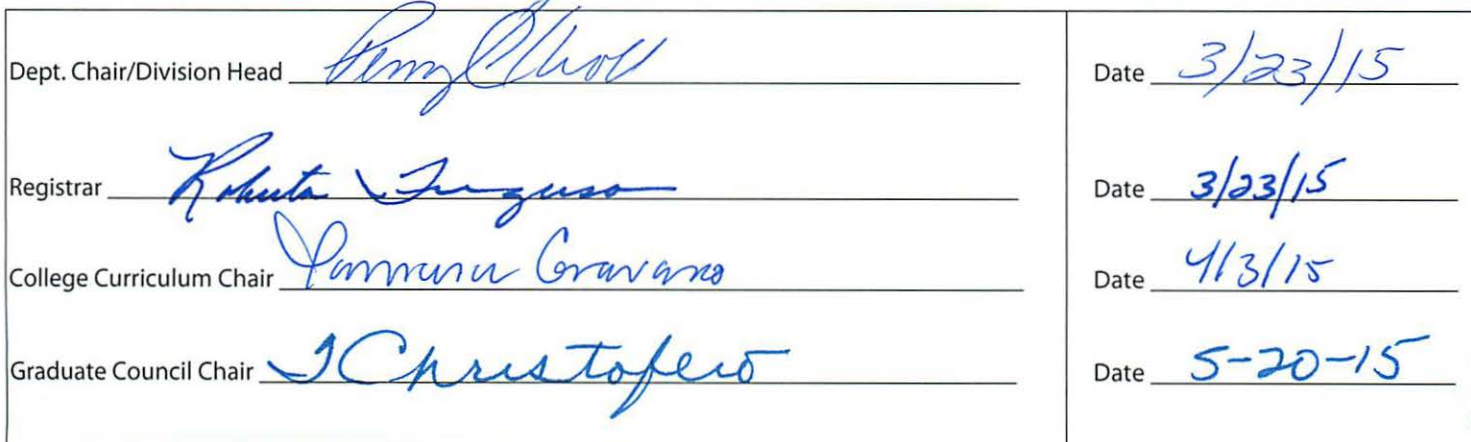 Dept. Chair/Division Head Date 3/23/15
Registrar Roberta Ferguson Date 3/23/15
College Curriculum Chair Gravano Date 4/3/15
Graduate Council Chair T Christofero Date 5-20-15